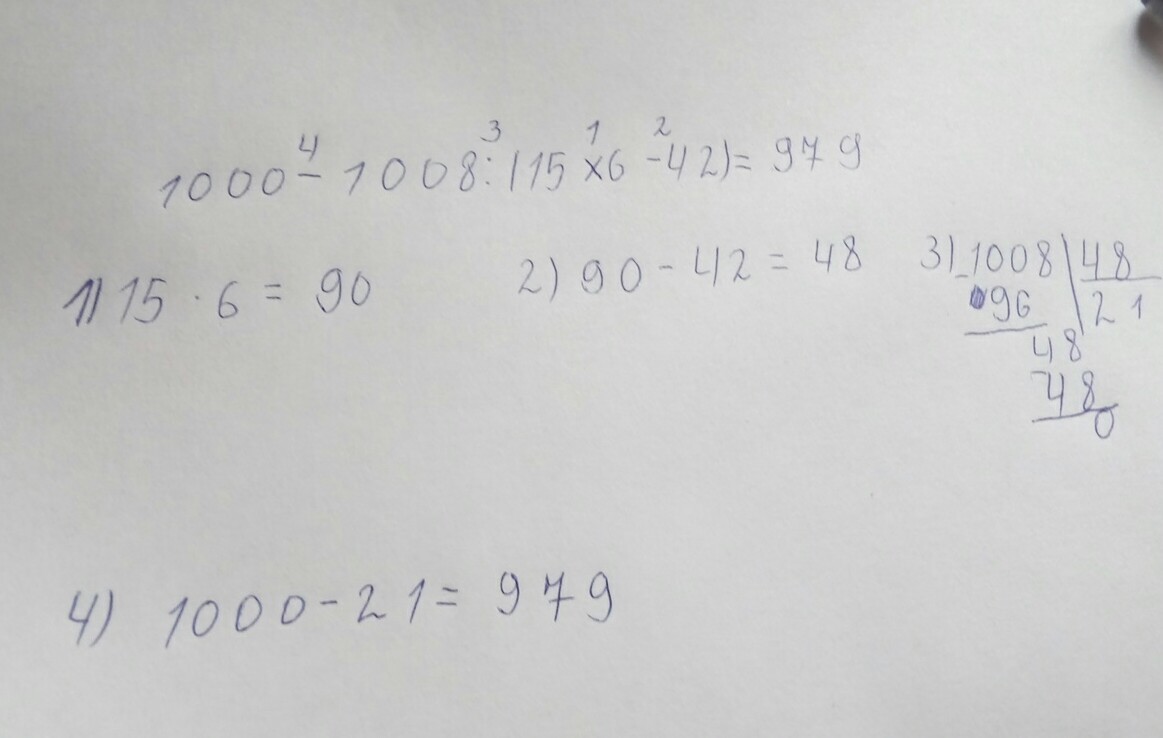 4 3 1 2
1000 - 1008 : (15 × 6 - 42) = 979
1) 15 · 6 = 90 2) 90 - 42 = 48 3) 1008 | 48
- 96 | 21
48
- 48
0
4) 1000 - 21 = 979